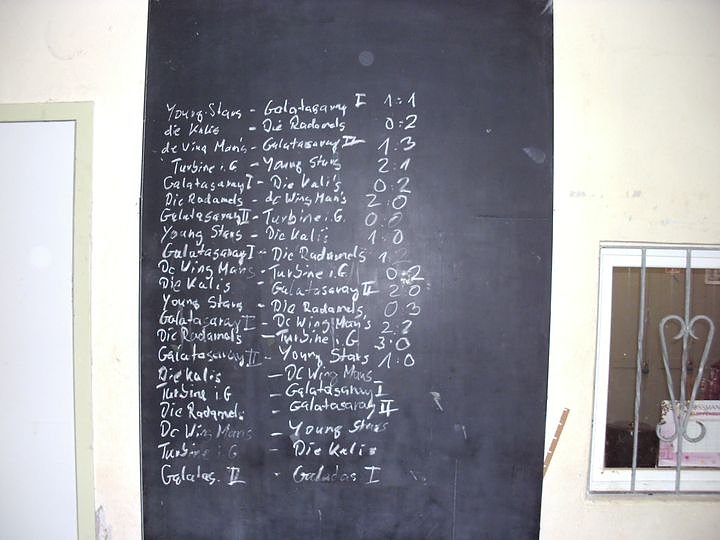 Young Stars - Galatasaray I 1:1
die Kalis - Die Radamels 0:2
de Wing Man's - Galatasaray II 1:3
Turbine i.G - Young Stars 2:1
Galatasaray I - Die Kali's 0:2
Die Radamels - de Wing Man's 2:0
Galatasaray II - Turbine i.G. 0:0
Young Stars - Die Kali's 1:0
Galatasaray I - Die Radamels 1:2
Dc Wing Mans - Turbine i.G 0:2
Die Kali's - Galatasaray II 2:0
Young Stars - Die Radamels 0:3
Galatasaray I - Dc Wing Man's 2:2
Die Radamels - Turbine i.G 3:0
Galatasaray II - Young Stars 1:0
Die Kalis - DC Wing Mans
Turbine i.G - Galatasaray I
Die Radamels - Galatasaray II
Dc Wing Mans - Young Stars
Turbine i.G - Die Kalis
Galatas. II - Galadas I